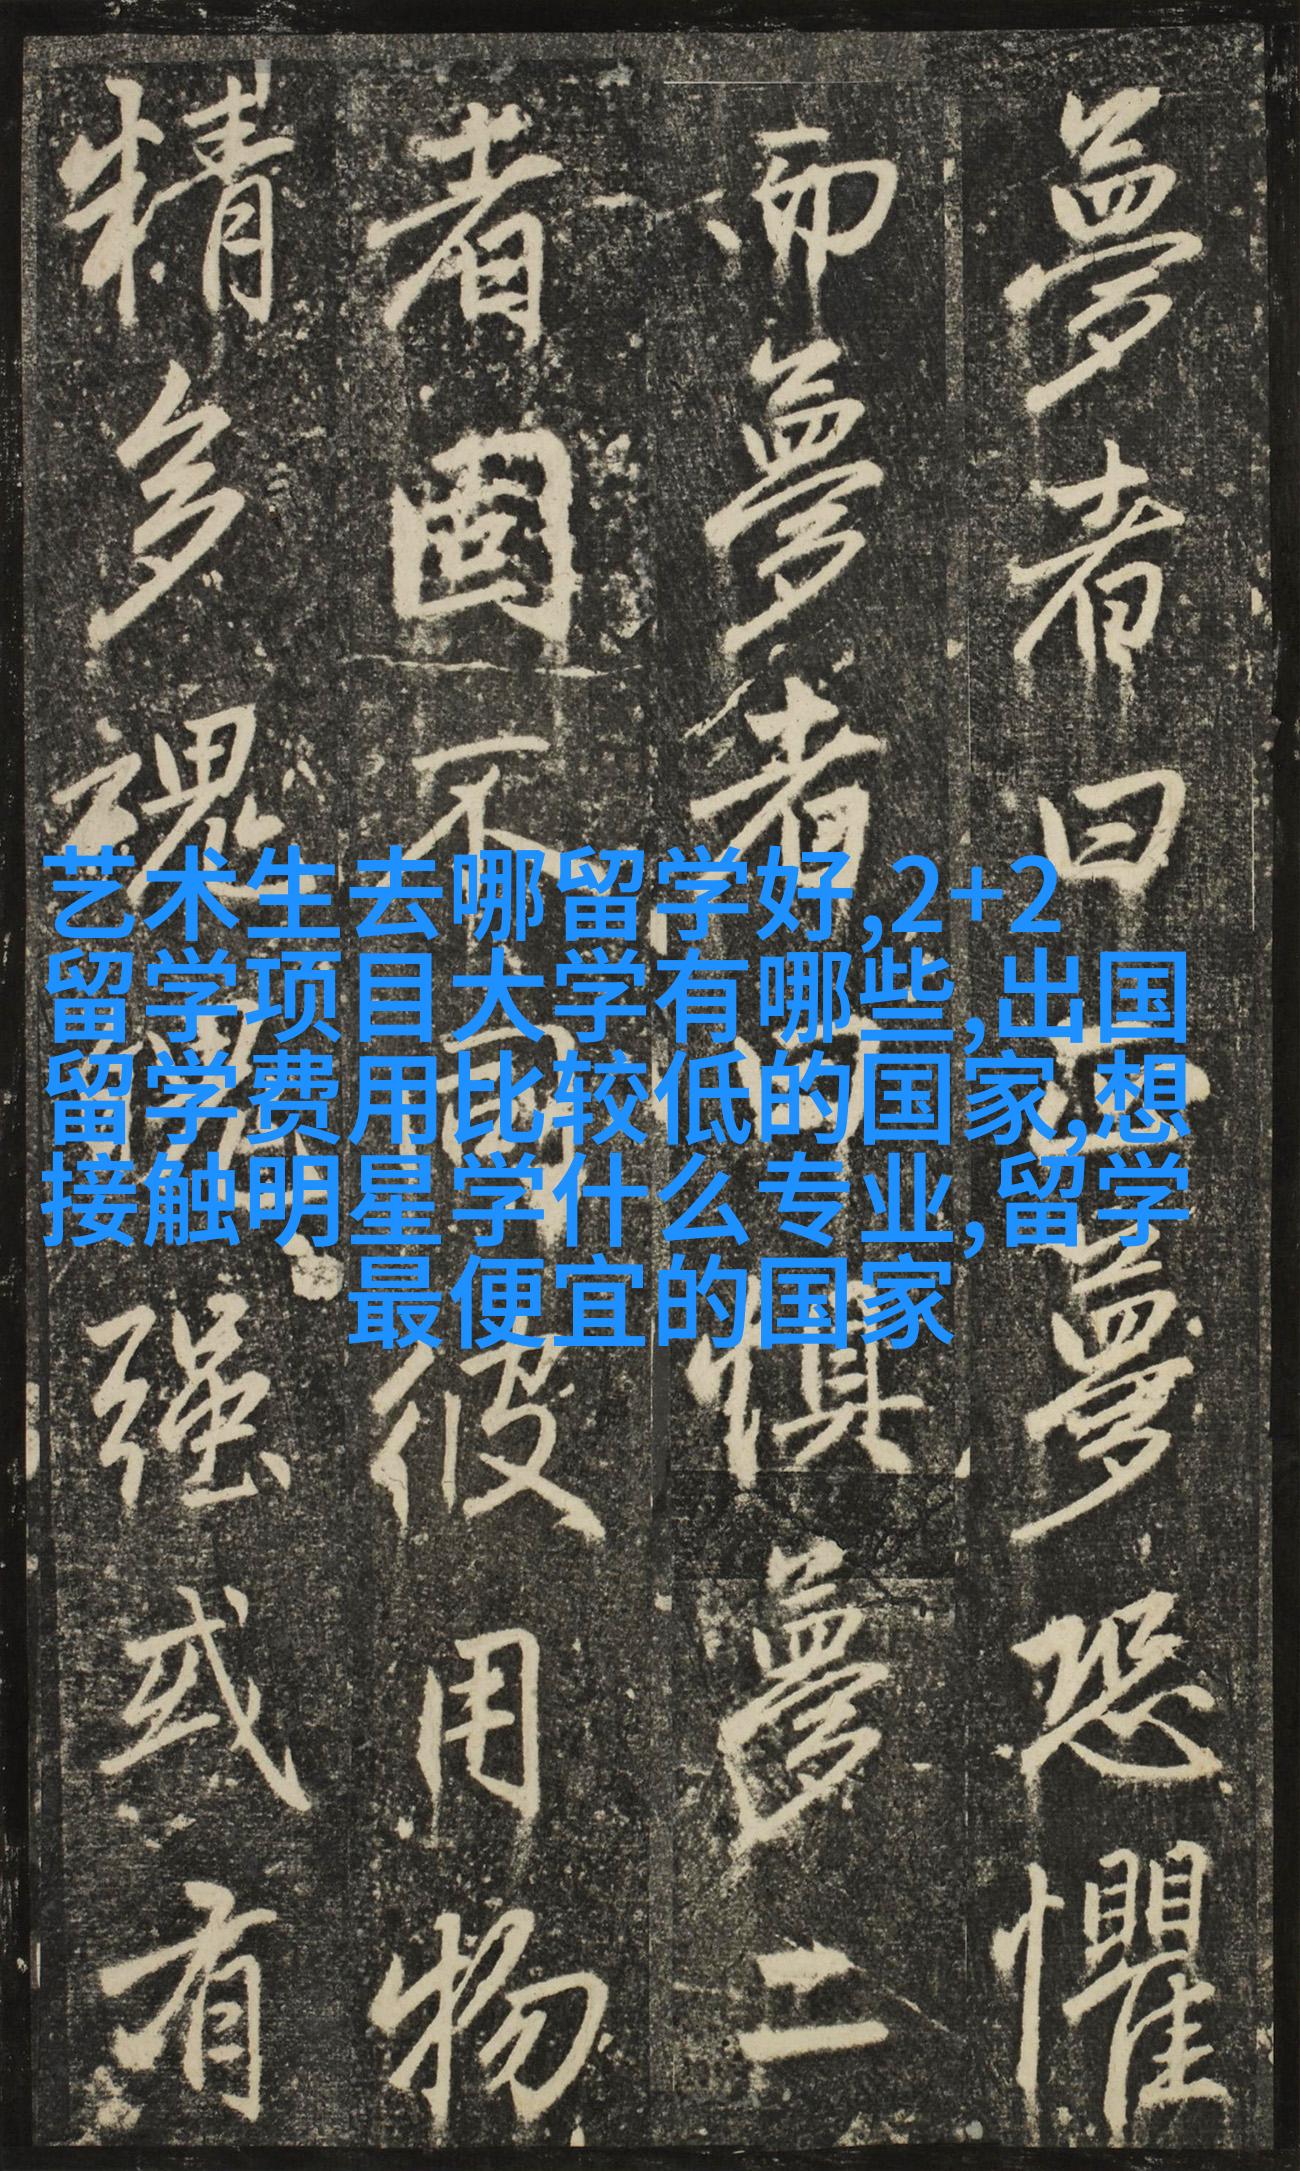 夢者曰正夢恐懼
而夢者
懼夢二
者固不可彼用物
精多魂
强或有
艺术生去哪留学好,2+2
留学项目大学有哪些,出国
留学费用比较低的国家,想
接触明星学什么专业,留学
最便宜的国家